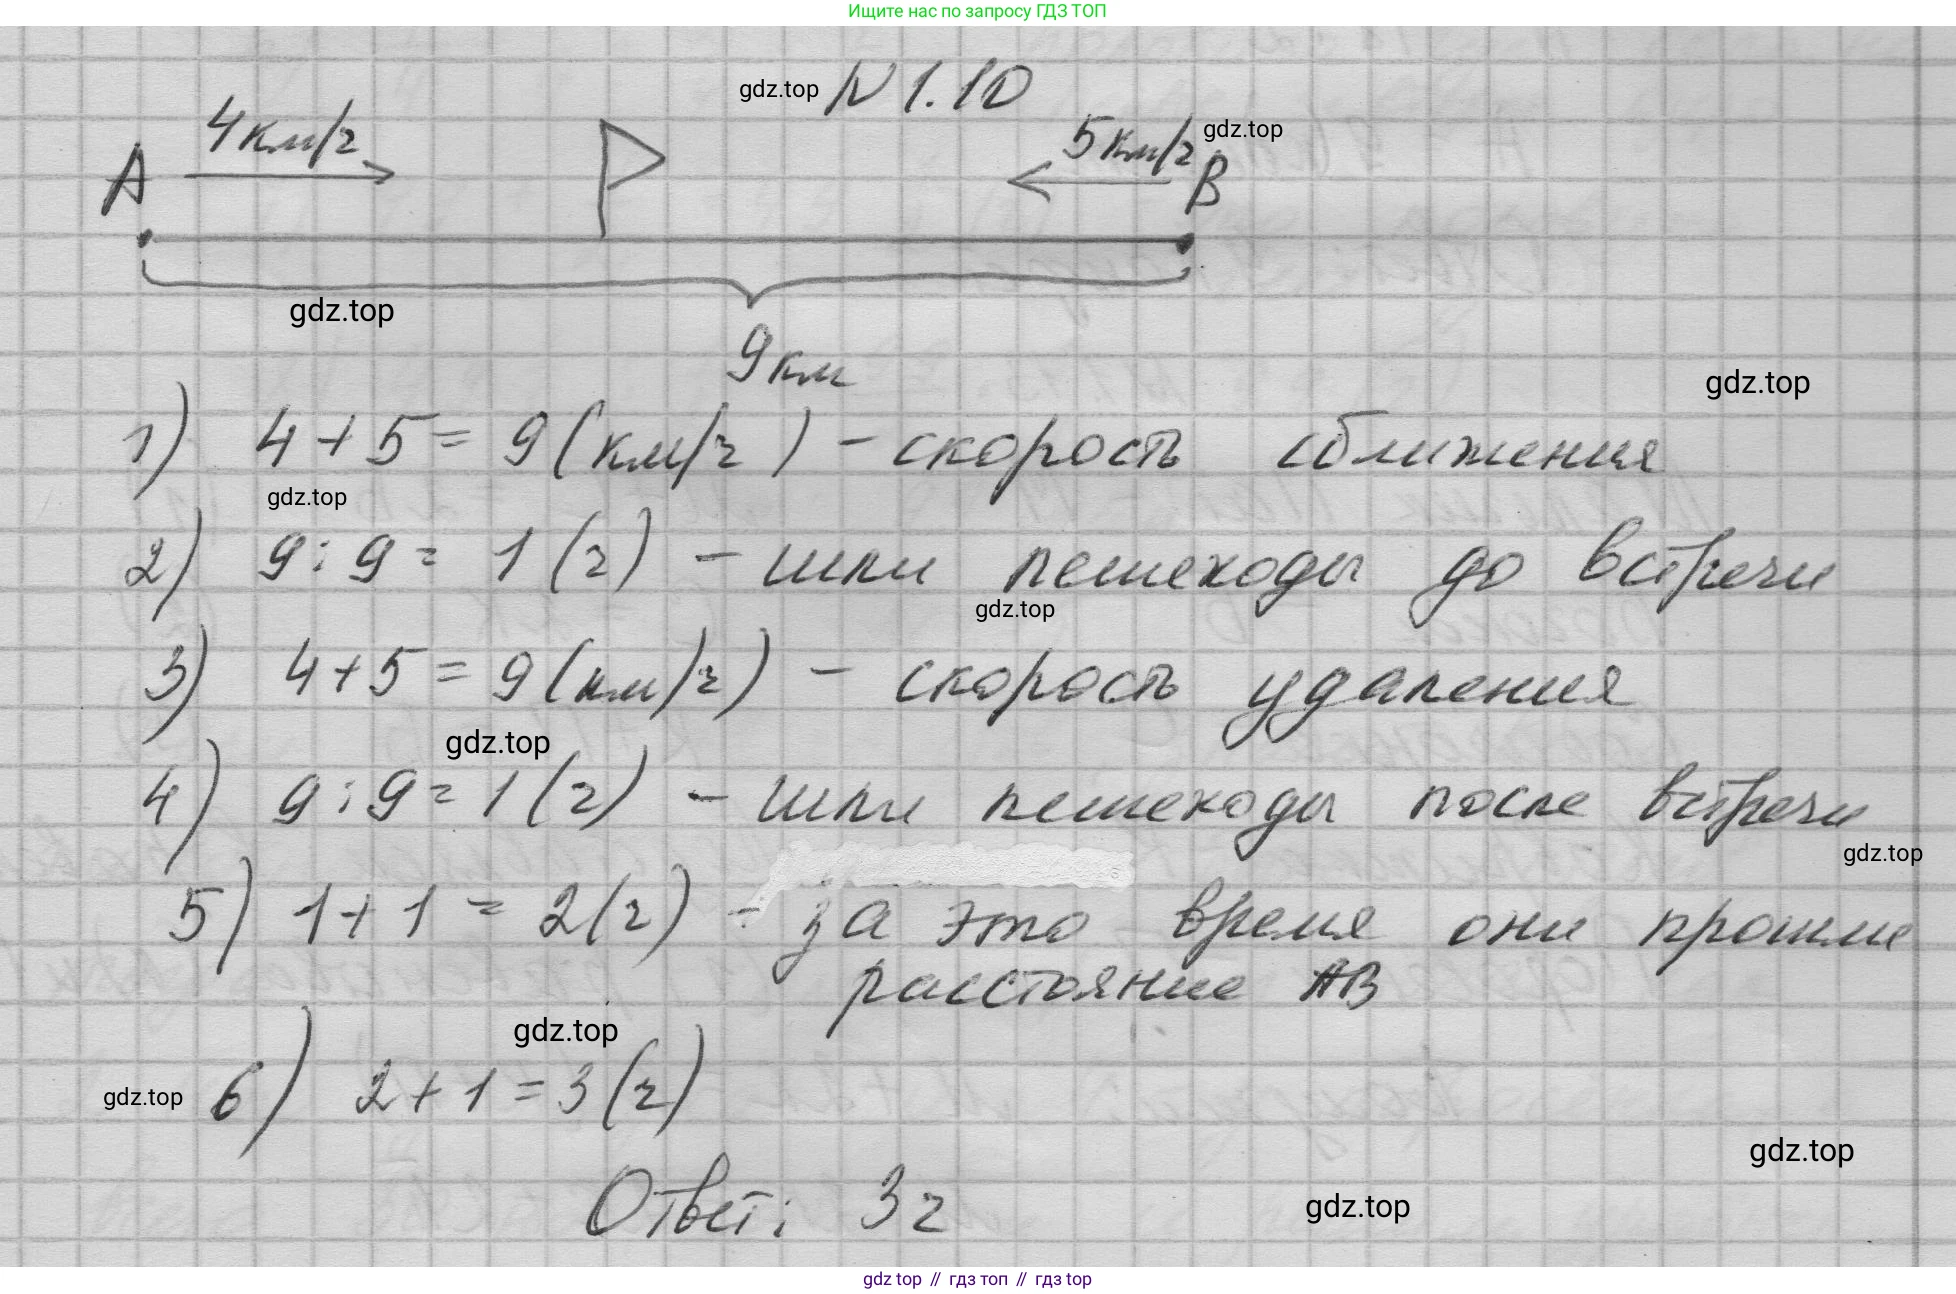 Ищите нас по запросу ГДЗ ТОП
gdz.top N 1.10
4км/ч
5км/ч gdz.top
A B
gdz.top
9 км
gdz.top
1) 4+5= 9(км/ч) - скорость сближения
gdz.top
2) 9:9= 1(ч) - шли пешеходы до встречи
gdz.top
3) 4+5= 9(км/ч) - скорость удаления
gdz.top
4) 9:9=1(ч) - шли пешеходы после встречи
gdz.top
5) 1+1=2(ч) - за это время они прошли
расстояние AB
gdz.top
gdz.top 6) 2+1=3(ч)
gdz.top
Ответ: 3 ч
gdz.top
gdz top // гдз топ // гдз top